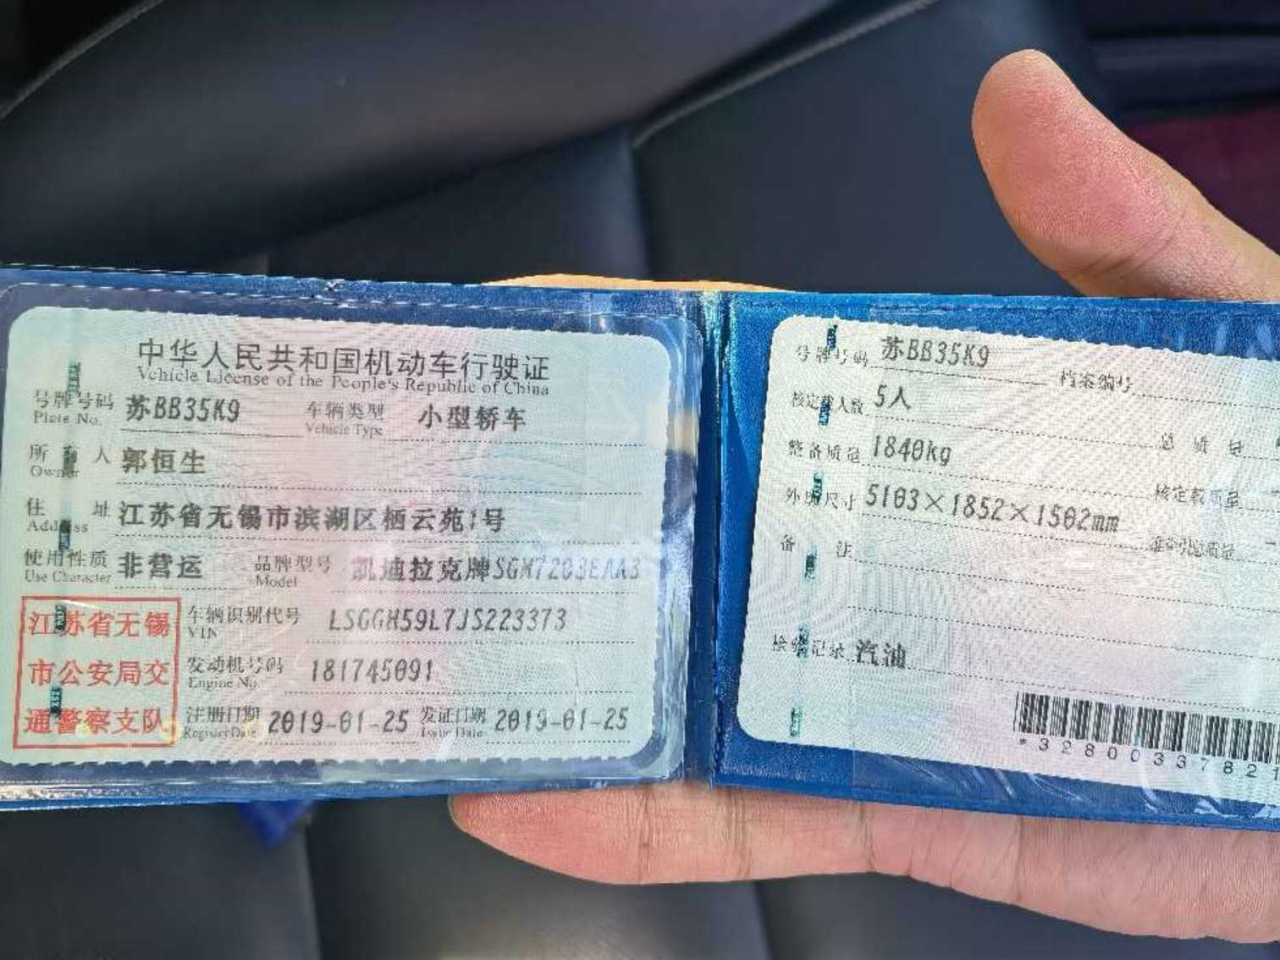 中华人民共和国机动车行驶证
Vehicle License of the People's Republic of China
号牌号码 苏BB35K9 车辆类型 小型轿车
Plate No. Vehicle Type
所有人 郭恒生
Owner
住址 江苏省无锡市滨湖区栖云苑1号
Address
使用性质 非营运 品牌型号 凯迪拉克牌SGM7203EAA3
Use Character Model
江苏省无锡
市公安局交
通警察支队
车辆识别代号 LSGGH59L7JS223373
VIN
发动机号码 181745091
Engine No.
注册日期 2019-01-25 发证日期 2019-01-25
Register Date Issue Date
号牌号码 苏BB35K9 档案编号
核定载人数 5人 总质量
整备质量 1840kg 核定载质量
外廓尺寸 5103×1852×1502mm 准牵引总质量
备注
检验记录 汽油
*3280033782